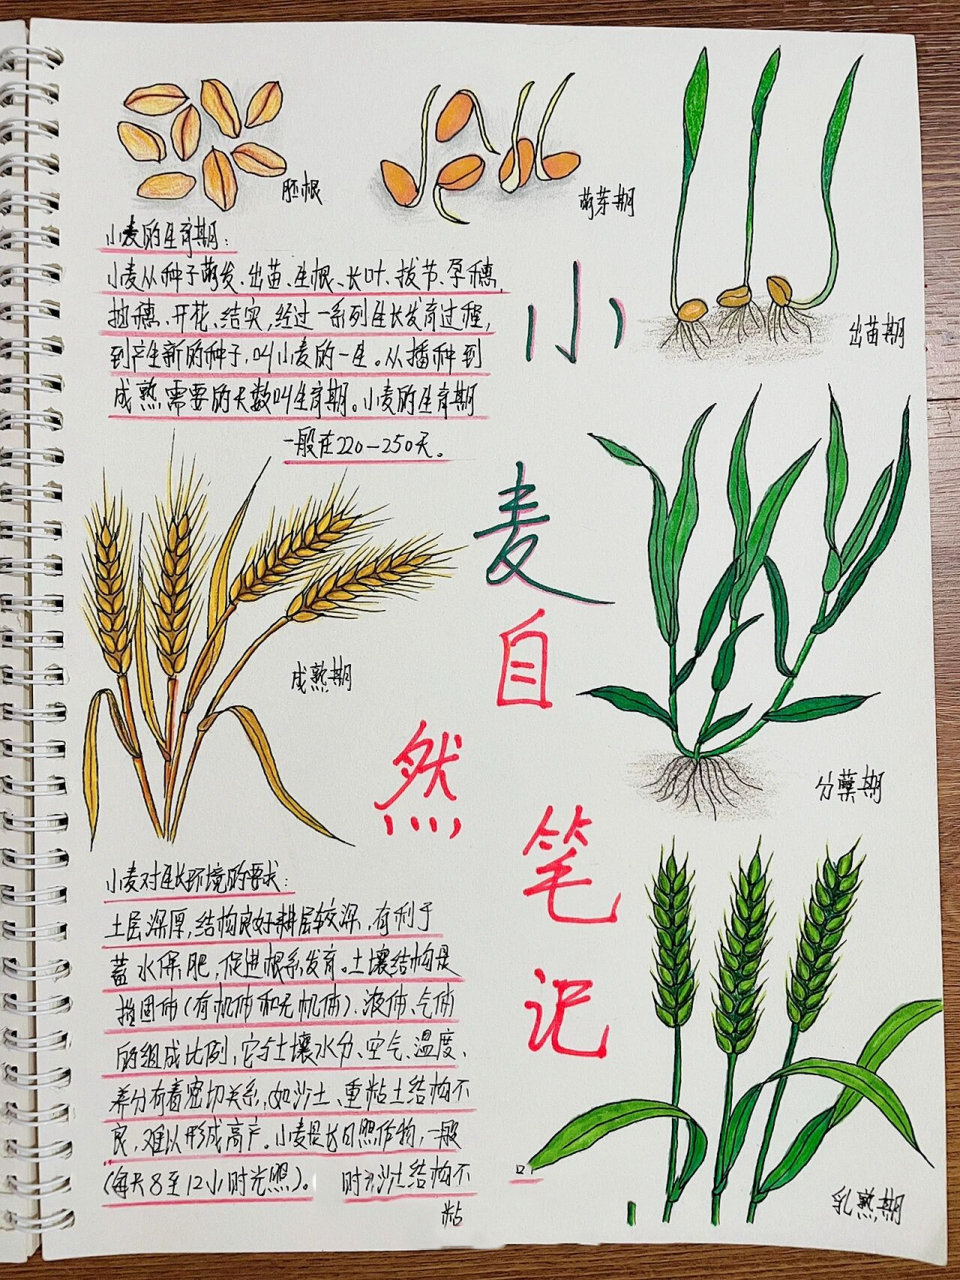 胚根
萌芽期
出苗期
小麦的生育期:
小麦从种子萌发、出苗、生根、长叶、拔节、孕穗,
抽穗、开花、结实,经过一系列生长发育过程,
到产生新的种子,叫小麦的一生。从播种到
成熟需要的天数叫生育期。小麦的生育期
一般在220—250天。
小
麦
自
然
笔
记
成熟期
分蘖期
小麦对生长环境的要求:
土层深厚,结构良好耕层较深,有利于
蓄水保肥,促进根系发育。土壤结构是
指固体(有机体和无机体)、液体、气体
的组成比例,它与土壤水分、空气、温度、
养分有着密切关系,如沙土、重粘土结构不
良,难以形成高产。小麦是长日照作物,一般
(每天8至12小时光照)。
沙土结构不
粘
乳熟期